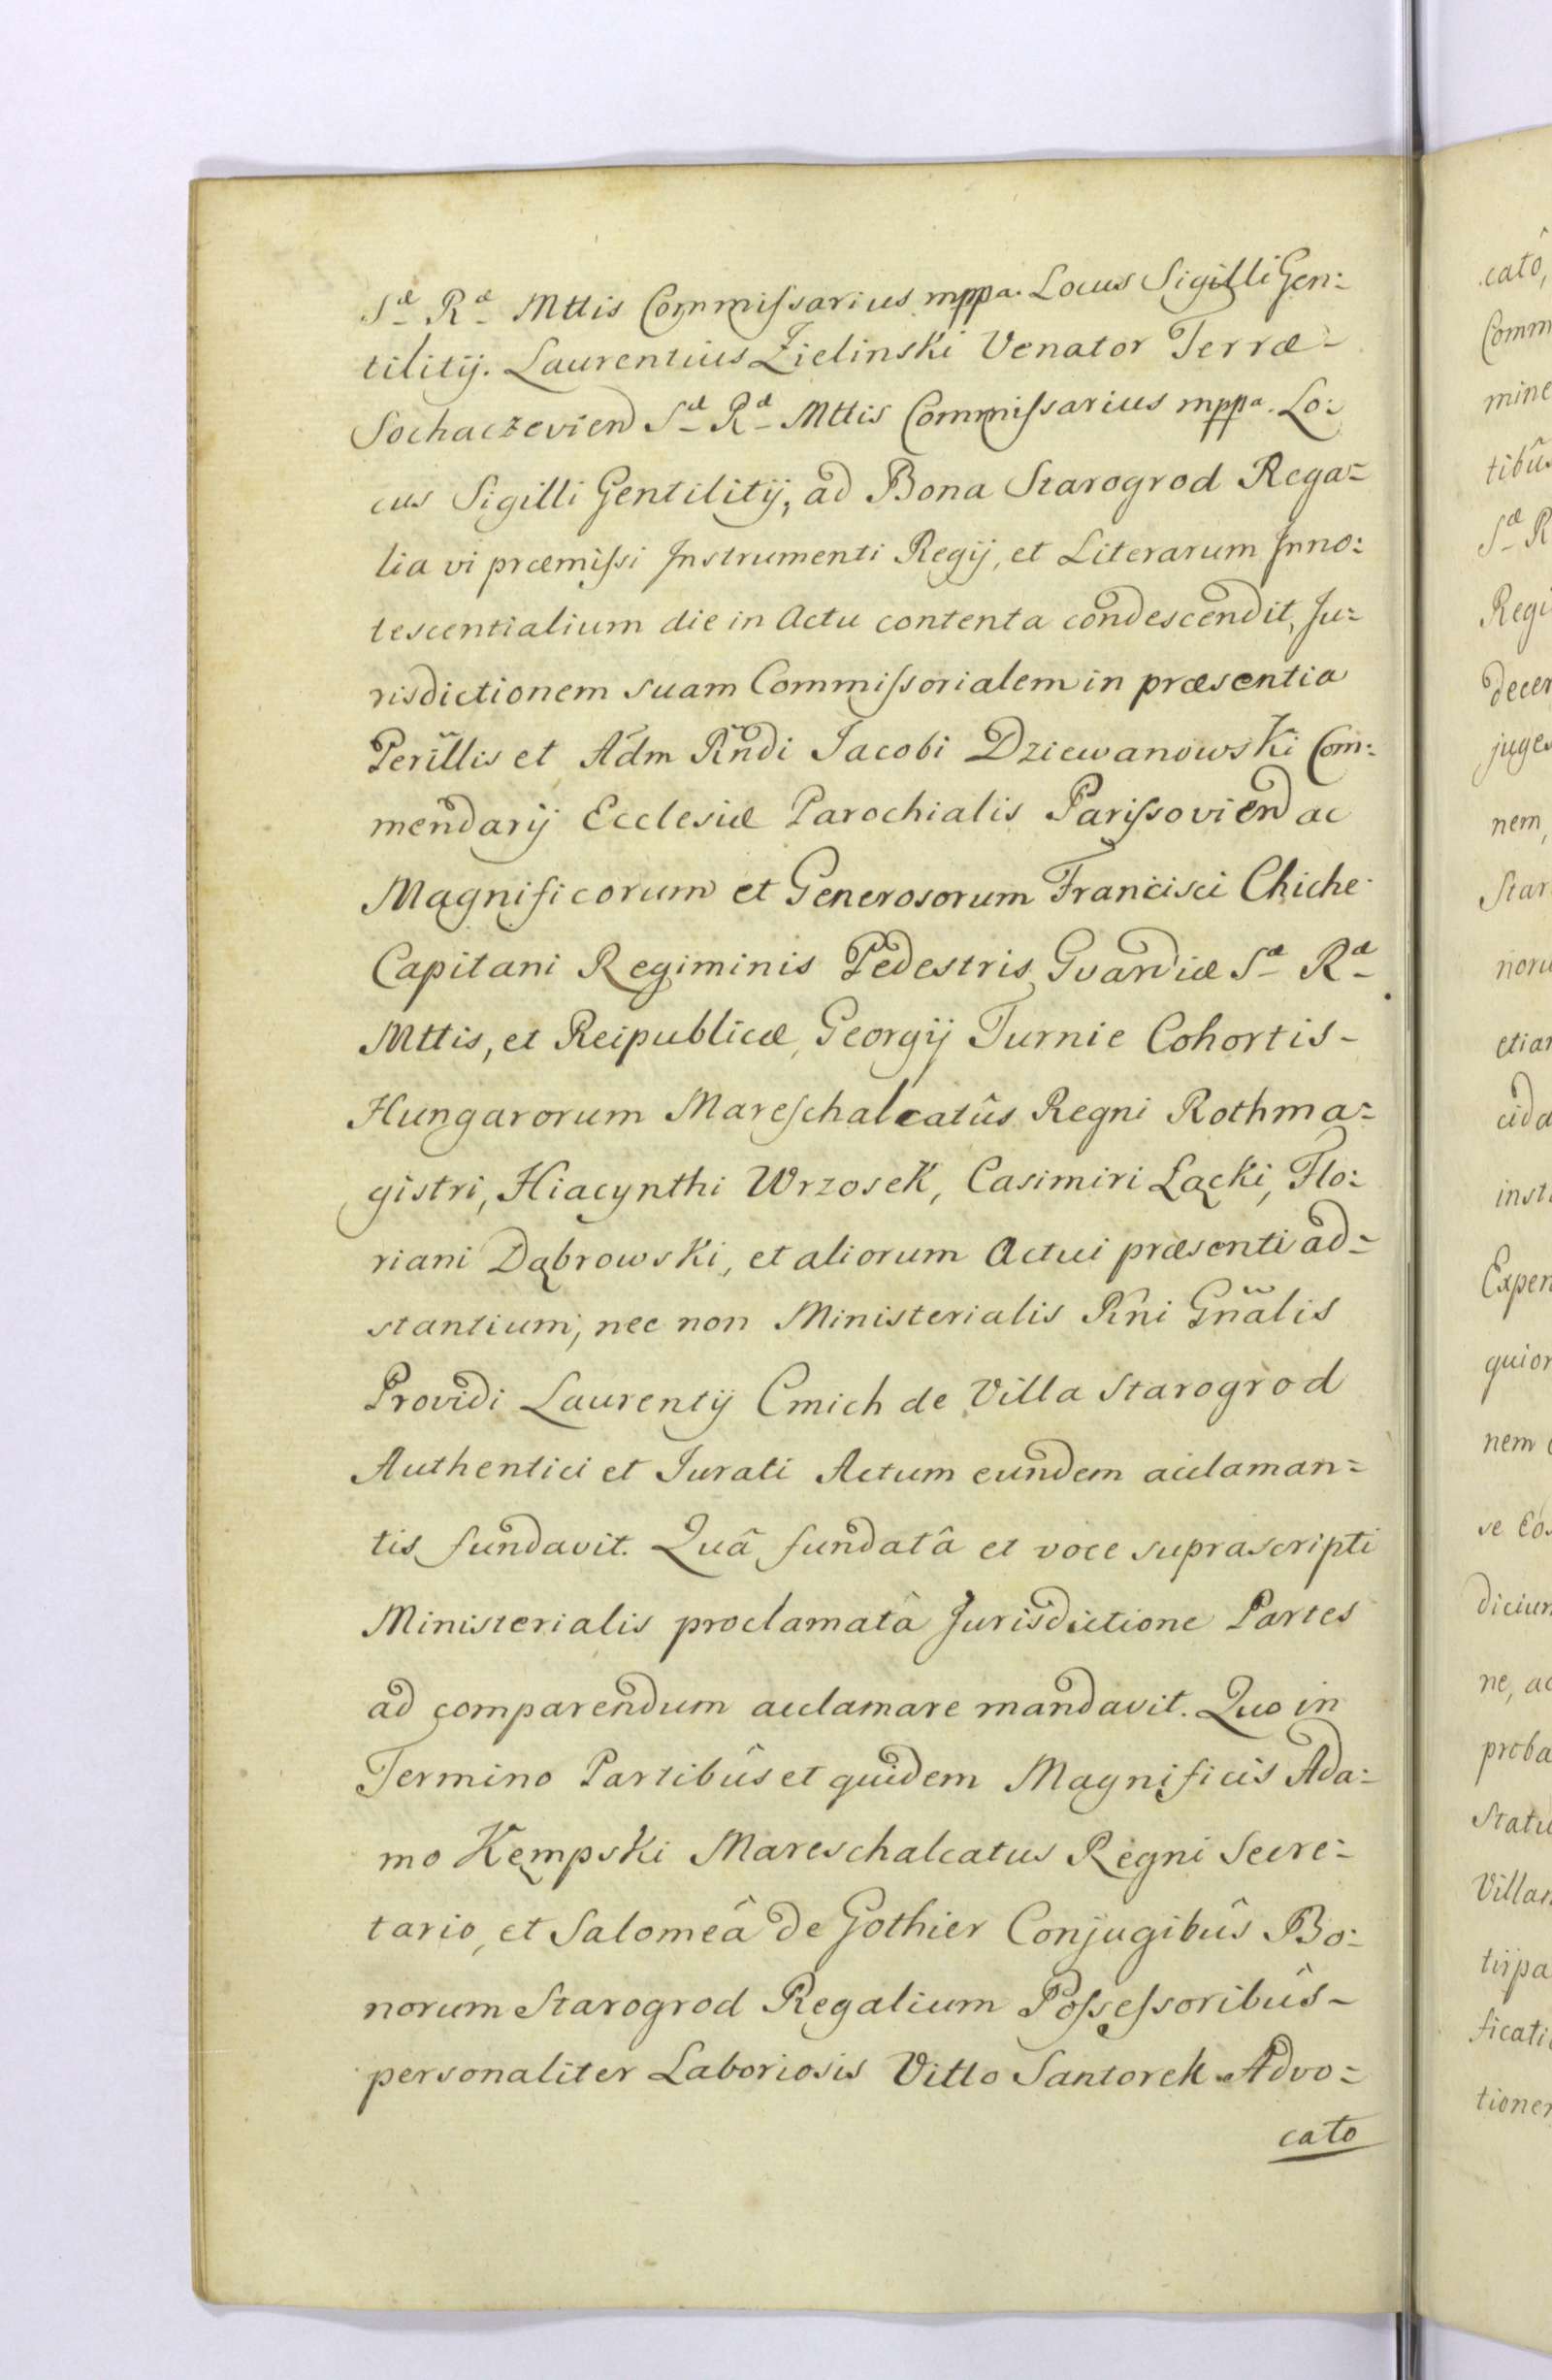 Sæ Ræ Mttis Commiſsarius mppa. Locus Sigilli Gen:
tilitij. Laurentius Zielinski Venator Terræ -
Sochaczevien Sæ Ræ Mttis Commiſsarius mppa. Lo:
cus Sigilli Gentilitij, ad Bona Starogrod Rega=
lia vi præmiſsi Instrumenti Regij, et Literarum Inno:
tescentialium die in Actu contenta condescendit, Ju=
risdictionem suam Commiſsorialem in præsentia
Perillis et Adm Rndi Jacobi Dziewanowski Com:
mendarij Ecclesiæ Parochialis Pariſsovien ac
Magnificorum et Generosorum Francisci Chiche
Capitani Regiminis Pedestris Gvardiæ Sæ Ræ
Mttis, et Reipublicæ, Georgij Turnie Cohortis -
Hungarorum Mareſchalcatûs Regni Rothma=
gistri, Hiacynthi Wrzosek, Casimiri Łącki, Flo:
riani Dąbrowski, et aliorum Actui præsenti ad=
stantium, nec non Ministerialis Rni Gnãlis
Providi Laurentij Cmich de Villa Starogrod
Authentici et Jurati Actum eundem acclaman=
tis fundavit. Quâ fundatâ et voce suprascripti
Ministerialis proclamatâ Jurisdictione Partes
ad comparendum acclamare mandavit. Quo in
Termino Partibûs et quidem Magnificis Ada=
mo Kępski Mareschalcatus Regni Secre=
tario, et Salomeâ de Gothier Conjugibûs Bo:
norum Starogrod Regalium Poſseſsoribûs -
personaliter Laboriosis Vitto Santorek Advo=
cato
catô,
Comm
mine
tibûs
Sæ R
Regi
decer
juge
nem,
Star
noru
etiar
cida
inst
Exper
quior
nem
ve
diciun
ne, ac
proba
Statu
Villar
ficati
tioner